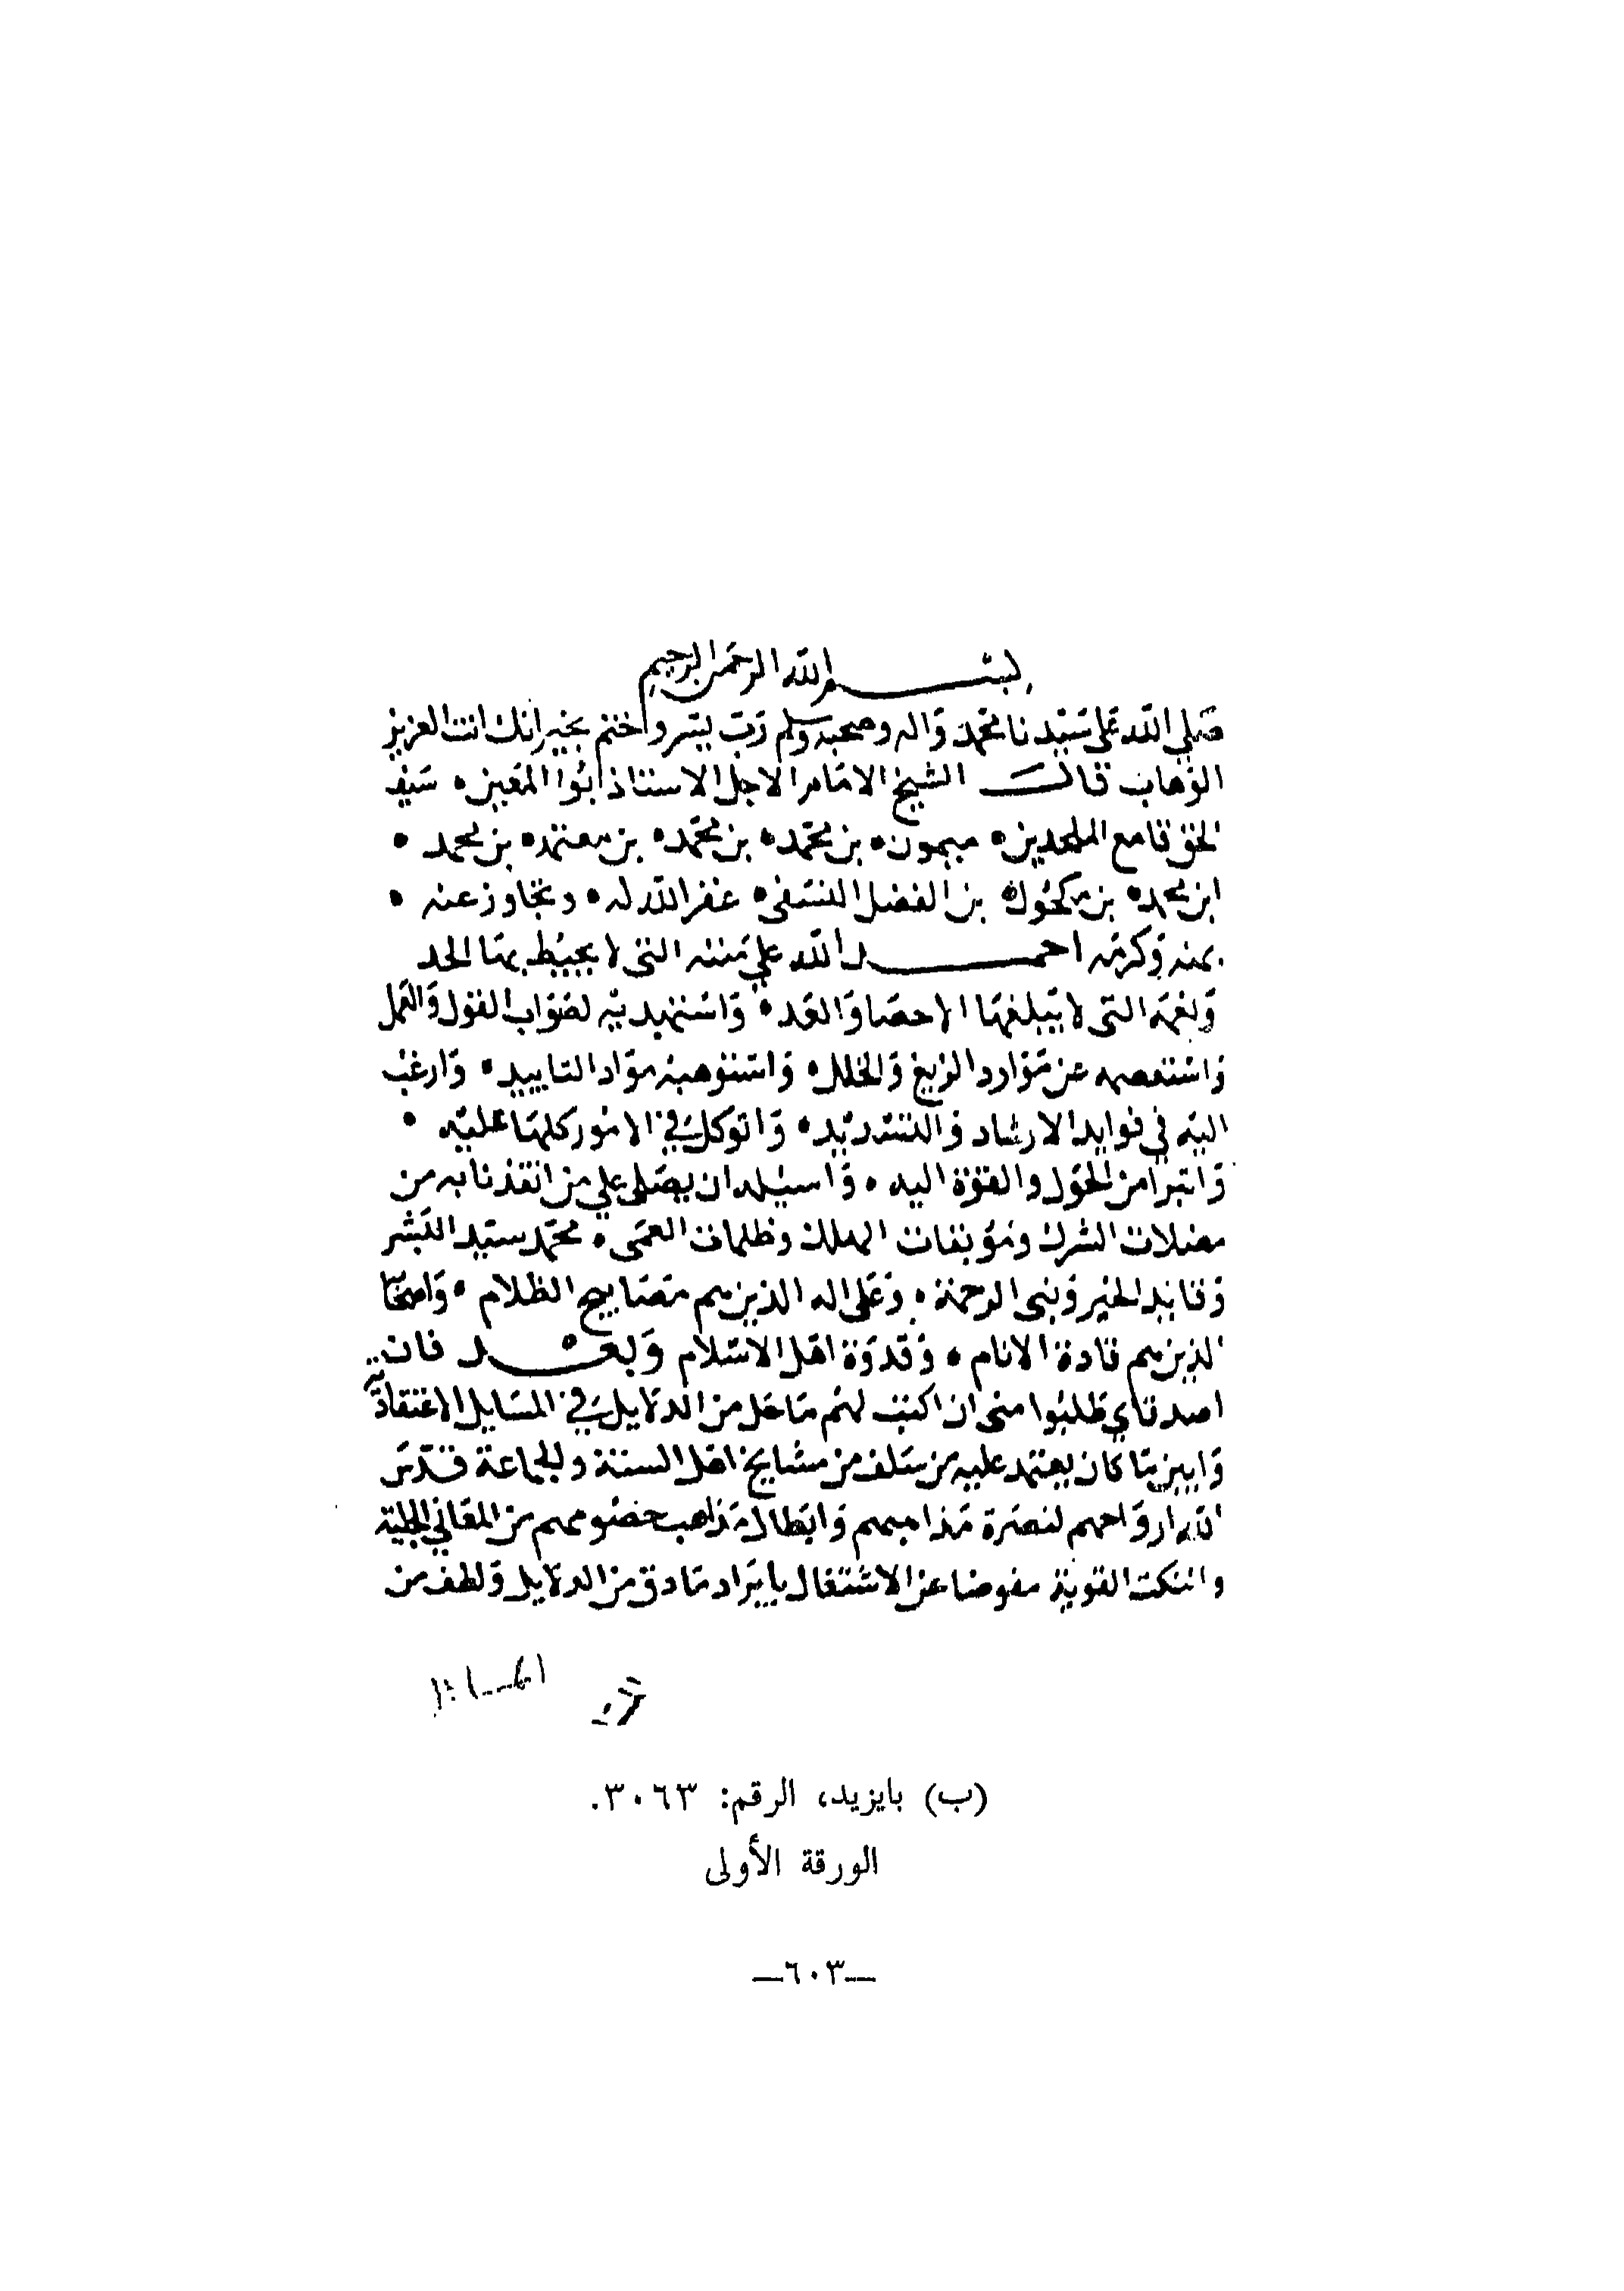 بسم الله الرحمن الرحيم
صلي الله على سيدنا محمد واله وصحبه وسلم رب يسر واختم بخير انك انت العزيز
الوهاب قال الشيخ الامام الاجل الاستاذ ابوا المعين • سيف
الحق قامع الملحدين • ميمون • بن محمد • بن محمد • بن معتمد • بن محمد •
ابن محمد • بن مكحول • بن الفضل النسفى • غفر الله له • وتجاوز عنه •
بمنه وكرمه احمد الله علي مننه التى لا يحيط بها الحد
ونعمه التى لا يبلغها الاحصا والعد • واستهديه لصواب القول والعمل
واستعصمه عن موارد الزيغ والخلل • واستوهبه مواد التاييد • وارغب
اليه في فوايد الارشاد والتسديد • واتوكل في الامور كلها عليه •
واتبرا من الحول والقوة اليه • واسيله ان يصلى علي من انقذنا به من
مضلات الشرك وموبقات الهلك وظلمات العمى • محمد سيد البشر
وقايد الخير ونبى الرحمة • وعلى اله الذين هم مصابيح الظلام • واصحابه
الذين هم قادة الانام • وقدوة اهل الاسلام وبعد فان
اصدقاي طلبوا منى ان اكتب لهم ما جل من الدلايل في المسايل الاعتقادية
وابين ما كان يعتمد عليه من سلف من مشايخ اهل السنة والجماعة قدس
الله ارواحهم لنصرة مذاهبهم وابطال مذاهب خصومهم من المعاني الجلية
والنكت القوية مفوضا عن الاشتغال بايراد ما دق من الدلايل ولطف من
(ب) بايزيد، الرقم: ٣٠٦٣.
الورقة الأولى
—٦٠٣—